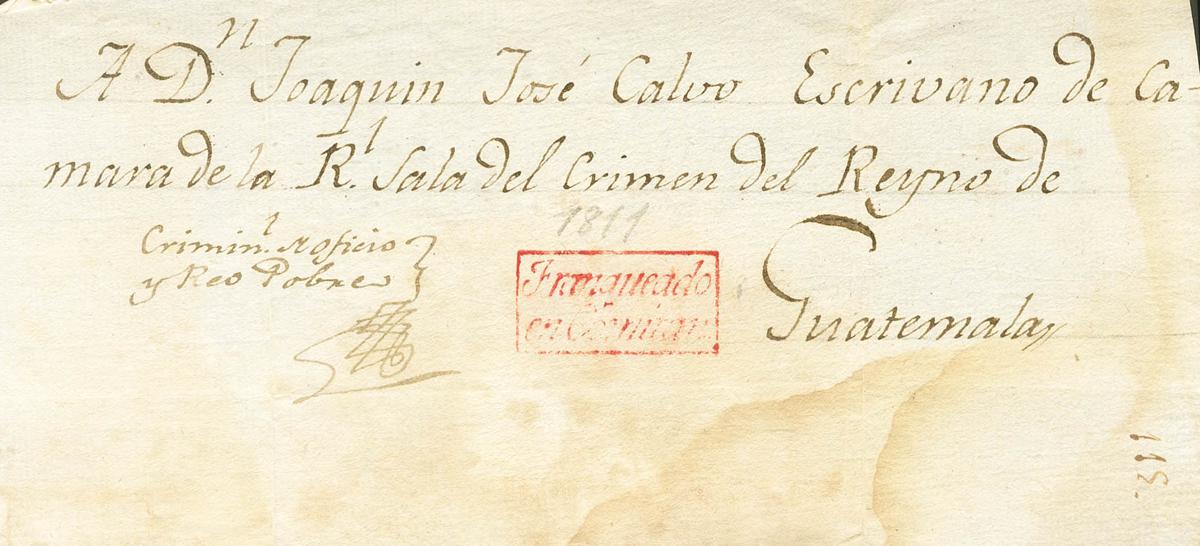 A D.n Joaquin José Calvo Escrivano de Ca-
mara de la R.l Sala del Crimen del Reyno de
Guatemala
Crimin.l de oficio
y Reo Pobre
1811
Franqueado
en Comitan.